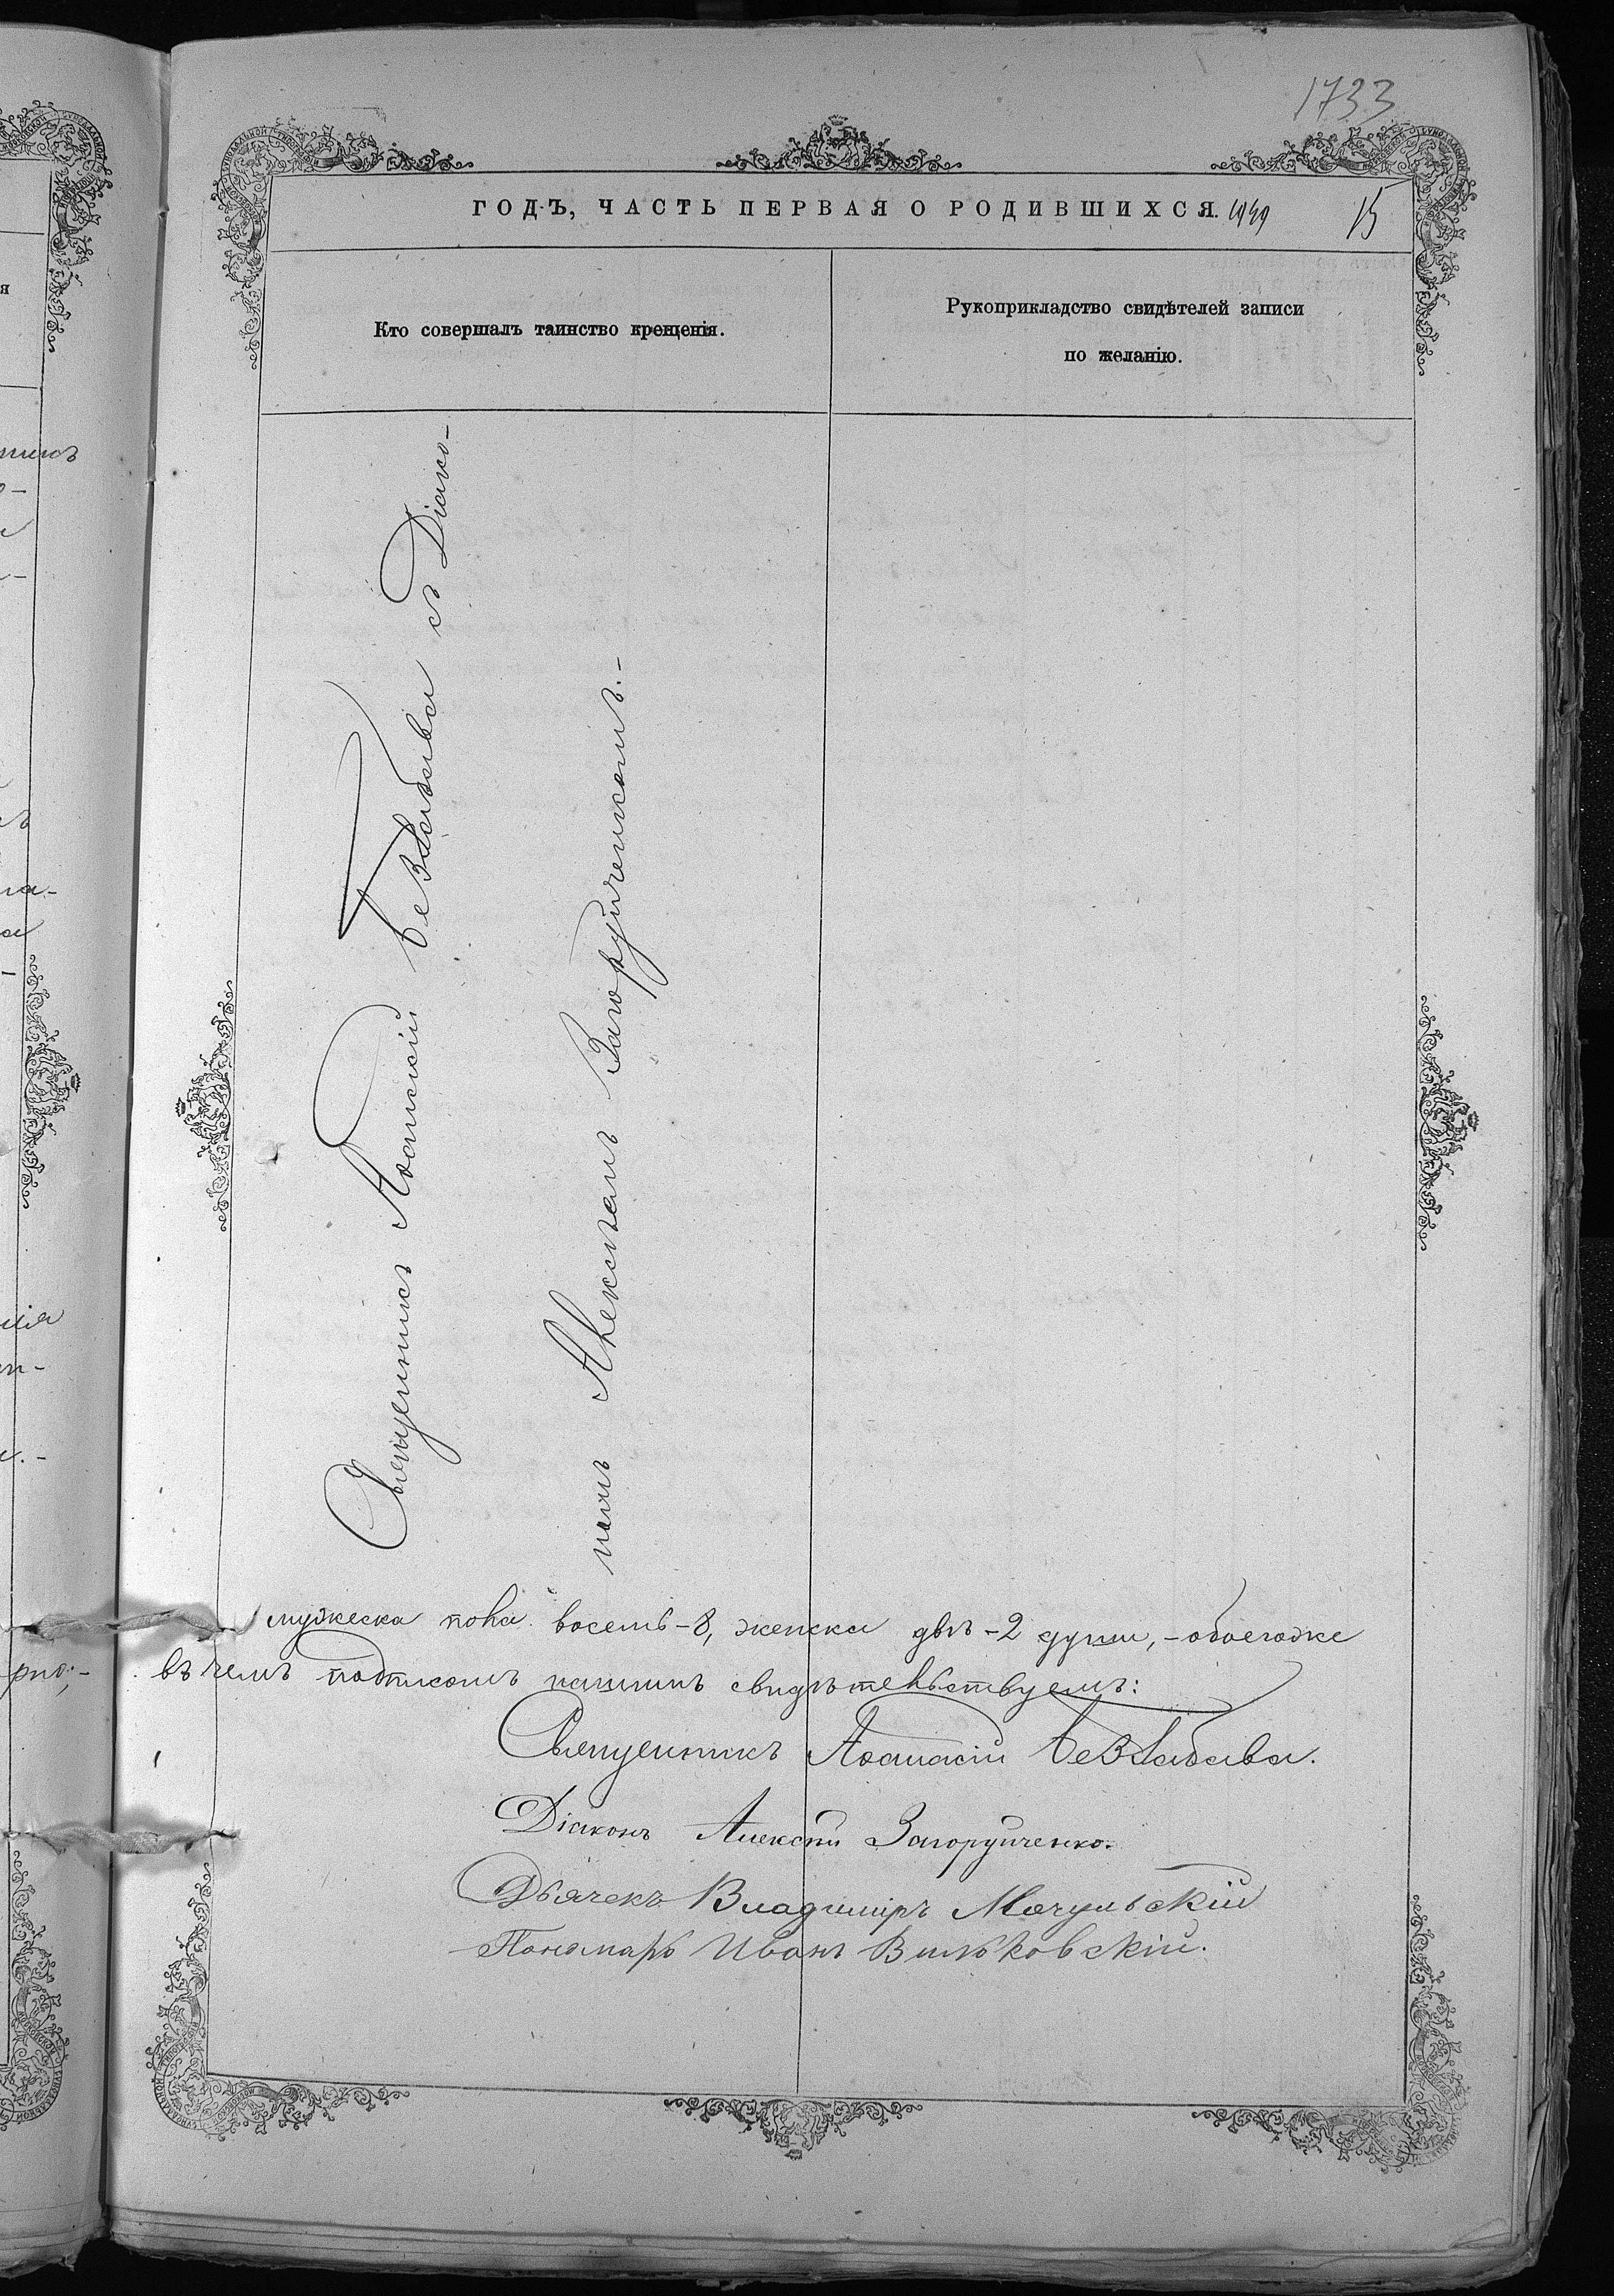 1733
ГОДЪ, ЧАСТЬ ПЕРВАЯ О РОДИВШИХСЯ.
15
Кто совершалъ таинство крещенія.
Рукоприкладство свидѣтелей записи
по желанію.
Священникъ Аѳанасій Безбабава съ Діако-
номъ Алексѣемъ Загоруйченкомъ.-
мужеска пола восемь-8, женска двѣ-2 души,-обоегоже
въ чемъ подписомъ нашимъ свидѣтельствуемъ:
Священникъ Аѳанасій
Діаконъ Алексѣй Загоруйченко.
Дьячекъ Владиміръ Мачульскій
Пономарь Иванъ Вильковскій.